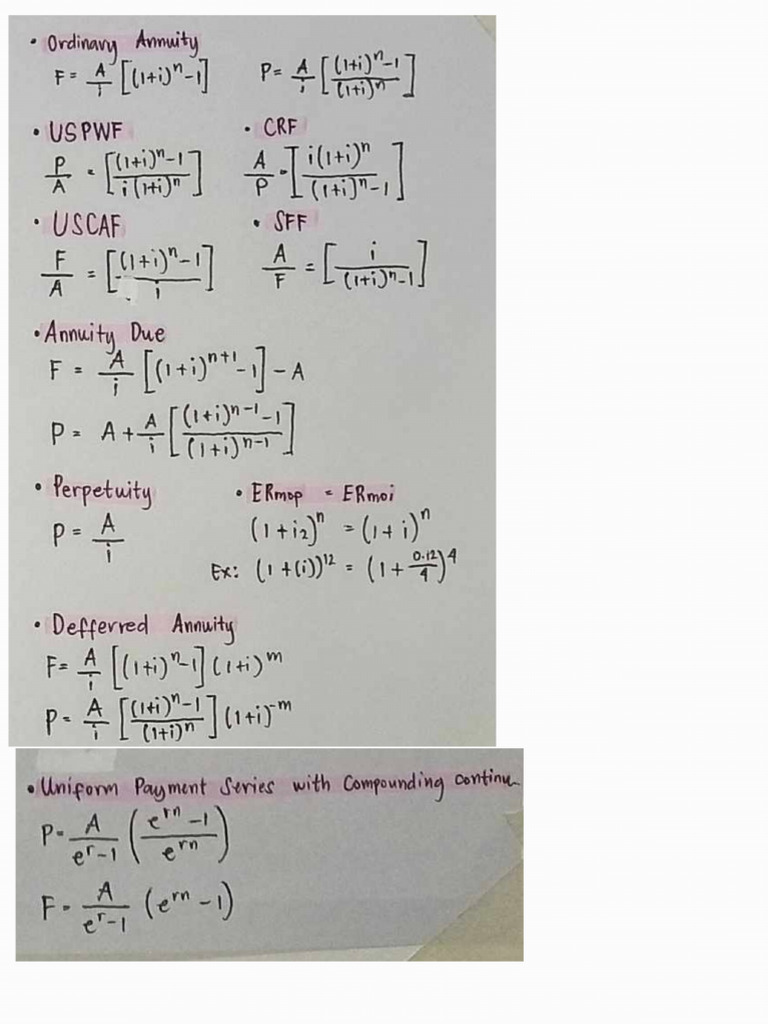 • Ordinary Annuity
F = A/i [(1+i)^n -1]    P = A/i [((1+i)^n -1)/((1+i)^n)]
• USPWF    • CRF
P/A = [((1+i)^n -1)/(i(1+i)^n)]    A/P = [(i(1+i)^n)/((1+i)^n -1)]
• USCAF    • SFF
F/A = [((1+i)^n -1)/i]    A/F = [i/((1+i)^n -1)]
• Annuity Due
F = A/i [(1+i)^(n+1) -1] - A
P = A + A/i [((1+i)^(n-1) -1)/((1+i)^(n-1))]
• Perpetuity    • ERmop = ERmoi
P = A/i    (1+i₂)^n = (1+i)^n
Ex: (1+(i))^12 = (1+ 0.12/4)^4
• Defferred Annuity
F = A/i [(1+i)^n -1] (1+i)^m
P = A/i [((1+i)^n -1)/((1+i)^n)] (1+i)^-m
• Uniform Payment Series with Compounding continu
P = A/(e^r -1) ((e^rn -1)/(e^rn))
F = A/(e^r -1) (e^rn -1)